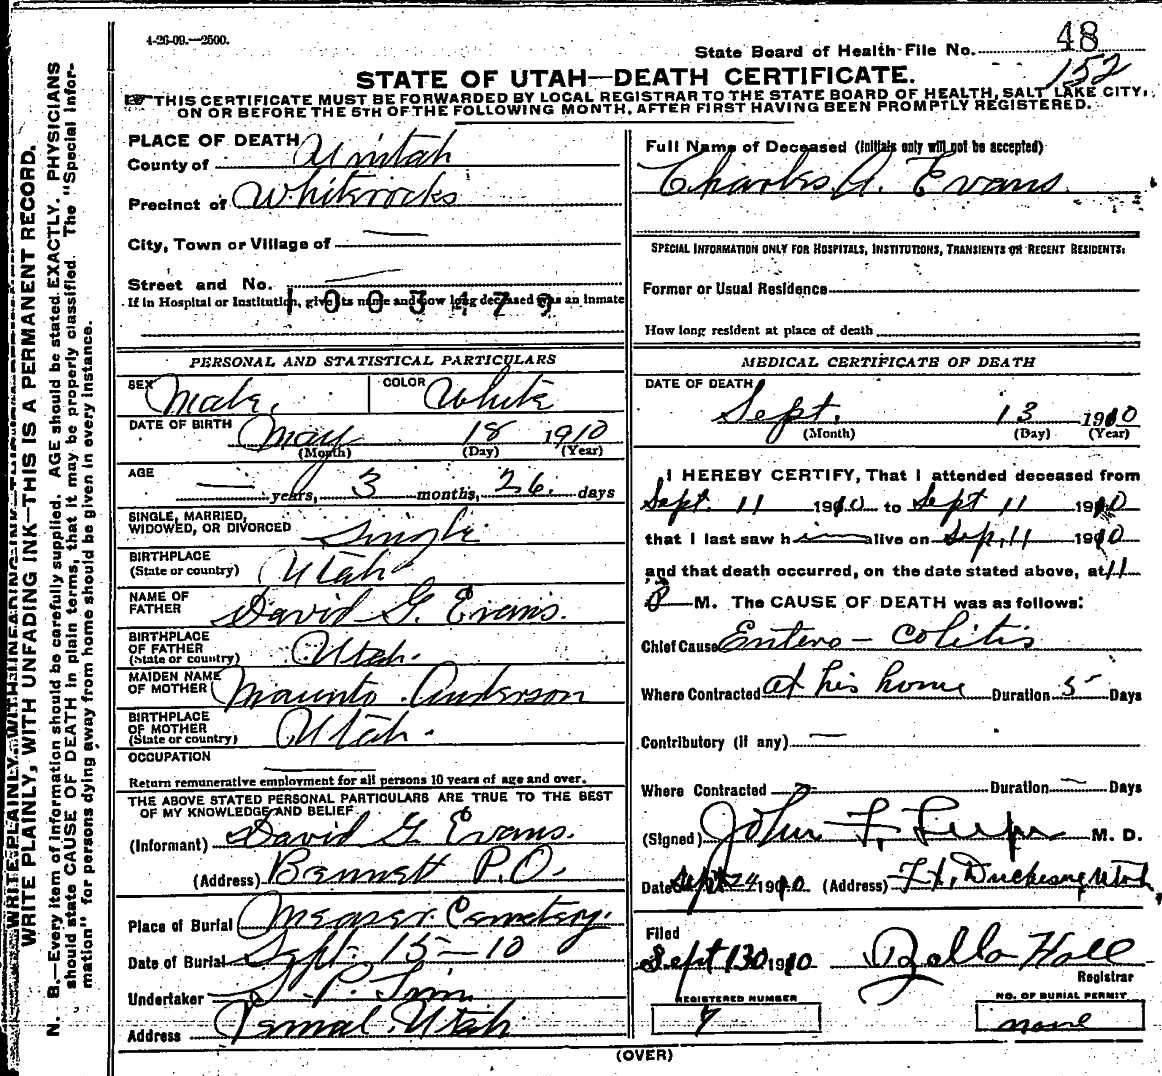 4-26-09.—2500.
State Board of Health File No. 48
152
STATE OF UTAH—DEATH CERTIFICATE.
THIS CERTIFICATE MUST BE FORWARDED BY LOCAL REGISTRAR TO THE STATE BOARD OF HEALTH, SALT LAKE CITY,
ON OR BEFORE THE 5TH OF THE FOLLOWING MONTH, AFTER FIRST HAVING BEEN PROMPTLY REGISTERED.
PLACE OF DEATH
County of Uintah
Precinct of Whiterocks
City, Town or Village of —
Street and No. —
1003479
If in Hospital or Institution, give its name and how long deceased was an inmate
Full Name of Deceased (Initials only will not be accepted)
Charles A. Evans.
SPECIAL INFORMATION ONLY FOR HOSPITALS, INSTITUTIONS, TRANSIENTS OR RECENT RESIDENTS:
Former or Usual Residence
How long resident at place of death
PERSONAL AND STATISTICAL PARTICULARS
SEX Male. COLOR White
DATE OF BIRTH May 18 1910
(Month) (Day) (Year)
AGE — years, 3 months, 26 days
SINGLE, MARRIED,
WIDOWED, OR DIVORCED Single
BIRTHPLACE
(State or country) Utah
NAME OF
FATHER David G. Evans.
BIRTHPLACE
OF FATHER
(State or country) Utah.
MAIDEN NAME
OF MOTHER Anderson
BIRTHPLACE
OF MOTHER
(State or country) Utah.
OCCUPATION
Return remunerative employment for all persons 10 years of age and over.
THE ABOVE STATED PERSONAL PARTICULARS ARE TRUE TO THE BEST
OF MY KNOWLEDGE AND BELIEF
(Informant) David G. Evans.
(Address) Bennett P.O.
Place of Burial Cemetery.
Date of Burial Sept. 15—10
Undertaker
Address Vernal Utah.
MEDICAL CERTIFICATE OF DEATH
DATE OF DEATH
Sept. 13 1910
(Month) (Day) (Year)
I HEREBY CERTIFY, That I attended deceased from
Sept. 11 1910 to Sept 11 1910
that I last saw him alive on Sep. 11 1910
and that death occurred, on the date stated above, at 11
M. The CAUSE OF DEATH was as follows:
Chief Cause Entero-Colitis
Where Contracted at his home Duration 5 Days
Contributory (if any) —
Where Contracted Duration — Days
(Signed) John F. M. D.
Date Sept 24 1910 (Address) Ft. Duchesne, Utah
Filed
Sept 30 1910 Zella Hall
Registrar
REGISTERED NUMBER
7
NO. OF BURIAL PERMIT
none
(OVER)
WRITE PLAINLY, WITH UNFADING INK—THIS IS A PERMANENT RECORD.
N. B.—Every item of information should be carefully supplied. AGE should be stated EXACTLY. PHYSICIANS
should state CAUSE OF DEATH in plain terms, that it may be properly classified. The "Special Infor-
mation" for persons dying away from home should be given in every instance.